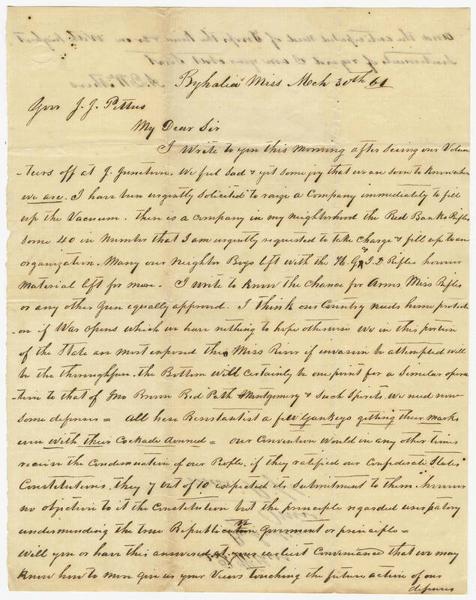 Byhalia Miss Mch 30th 61
Gov J. J. Pettus
My Dear Sir
I write to you this morning after seeing our Volun
teers off at G. Junction. We feel sad & yet some joy that we are soon to know who
we are. I have been urgently solicited to raise a Company immediately to fill
up the Vacuum. There is a company in my neighborhood the Red Banks Rifles
some 40 in number that I am urgently requested to take charge & fill up to an
organization. Many our neighbor Boys left with the H. G. & J. D Rifles however
material left for more. I write to know the chance for Arms Miss Rifles
or any other Gun equally approved. I think our Country needs home protecti
on if War opens which we have nothing to hope otherwise. We in this portion
of the State are most exposed the Miss River if invasion be attempted will
be the throughfare. the Bottom will certainly be one point for a similar opera
tion to that of Jno Brown Red Path Montgomery & such spirits. We need now
some defenses = all here a few Yankeys getting their marks
even with their Cockade donned = our Convention would in any other times
receive the Condemnation of our People. if they ratified our Confederate States
Constitutions. They 7 out of 10 expected its submittment to them. however
no objection to it the Constitution but the principle regarded usurpatory
undermining the true Republican Government or principles =
Will you or have this answered at your earliest Convenience that we may
know how to move give us your Views touching the future action of our
defenses